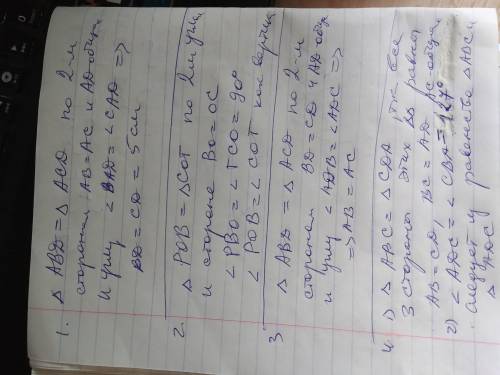 1. △ ABD = △ ACD по 2-м
сторонам AB = AC и AD-общая
и углу ∠BAD = ∠CAD =>
BD = CD = 5 см
2. △ POB = △COT по 2м углам
и стороне BO = OC
∠PBO = ∠TCO = 90°
∠POB = ∠COT как вертик
3. △ ABD = △ ACD по 2-м
сторонам BD = CD и AD-общ
и углу ∠ADB = ∠ADC =>
=> AB = AC
4. 1) △ ABC = △ CDA т.к. все
3 стороны этих △△ равны
AB = CD, BC = AD AC-общая
2) ∠ADC = ∠CBA = 127°
следует из равенства △ABC и
△ADC